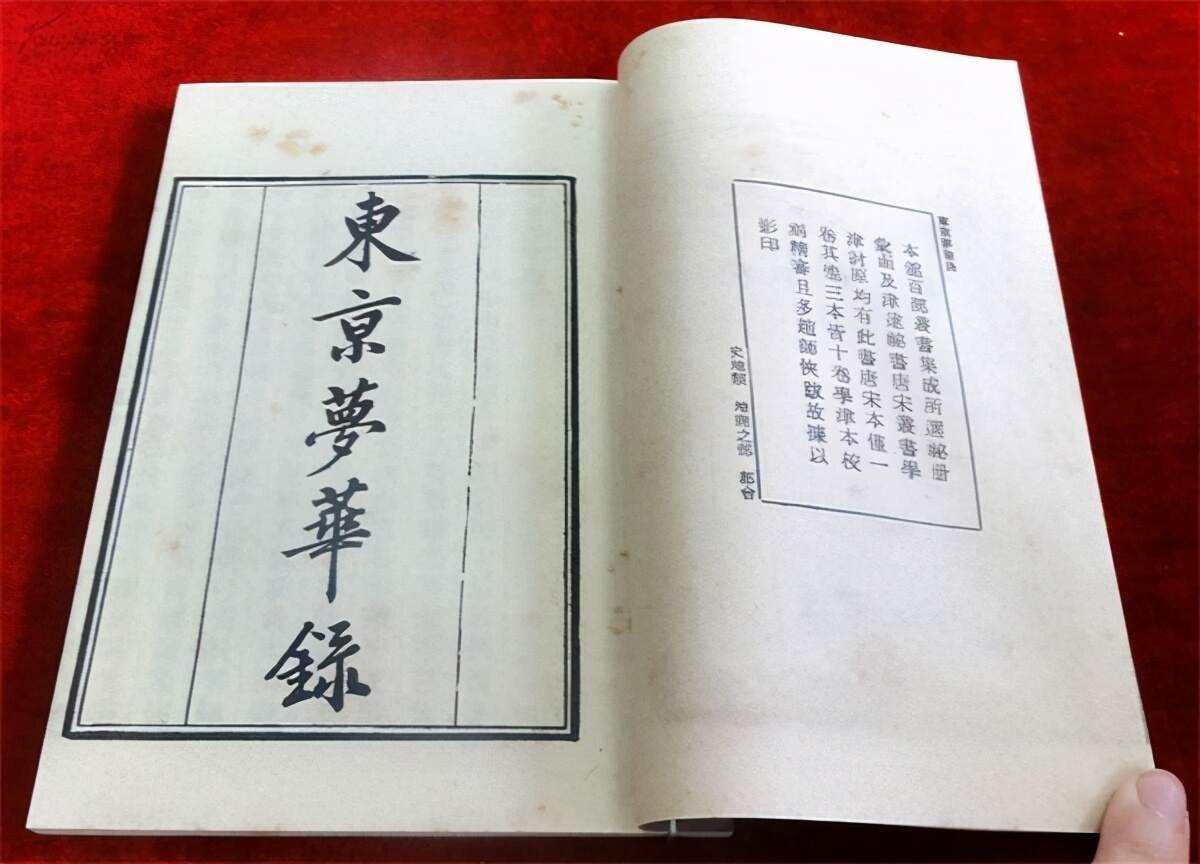 東京夢華錄
本館百部叢書集成所選祕冊
彙函及津逮祕書唐宋叢書學
津討原均有此書唐宋本僅一
卷其他三本皆十卷學津本校
精審且多趙師俠跋故據以
影印
史地類 之部 都會
東京夢華錄